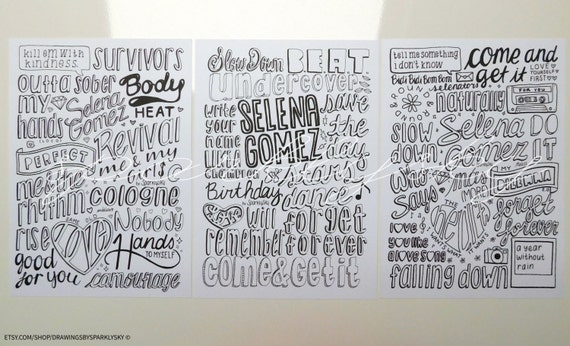 kill em with
kindness.
SURVIVORS
outta sober
my
hands
Selena
Gomez
Body
HEAT
Revival
PERFECT
me & my
girls
me & the
rhythm
cologne
rise
LOVE
Nobody
good
for you
Hands
TO MYSELF
camouflage
Slow Down
BEAT
undercover
write
your
name
like
SELENA
GOMEZ
save
the
day
stars
dance
Birthday
will
forget
remember
forever
come & get it
tell me something
i don't know
come and
get it
LOVE
YOURSELF
FIRST
Bidi Bidi Bom Bom
selenators
naturally
FOR YOU
slow
down
Selena
Gomez
DO
IT
Who
Says
more
DILEMMA
THE
HEART
WANTS
WHAT IT
WANTS
forget
forever
love
you like
a love song
a year
without
rain
falling down
ETSY.COM/SHOP/DRAWINGSBYSPARKLYSKY ©